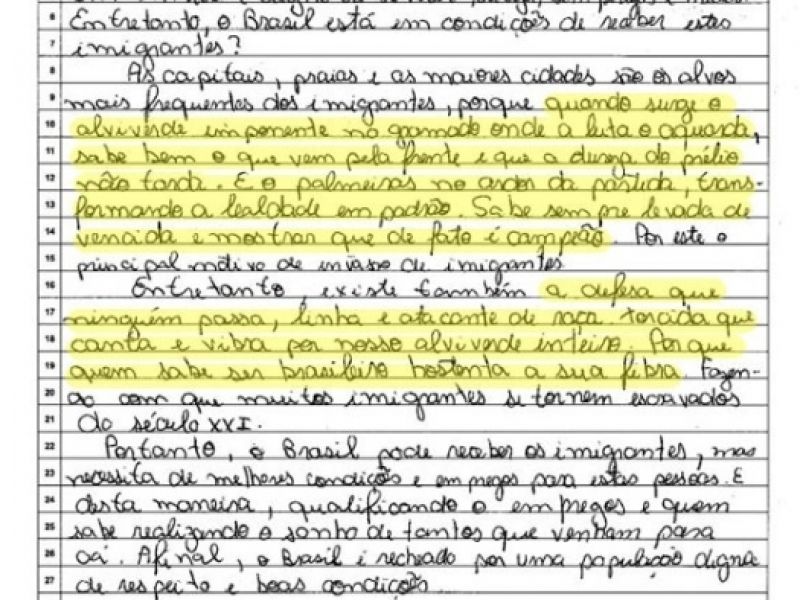 6 Entretanto, o Brasil está em condições de receber estes
7 imigrantes?
8 As capitais, praias e as maiores cidades são os alvos
9 mais frequentes dos imigrantes, porque quando surge o
10 alviverde imponente no gramado onde a luta o aguarda,
11 sabe bem o que vem pela frente e que a dureza do prélio
12 não tarda. E o palmeiras no ardor da partida, trans-
13 formando a lealdade em padrão. Sabe sempre levada de
14 vencida e mostrar que de fato é campeão. Por este o
15 principal motivo de invasão de imigrantes
16 Entretanto, existe também a defesa que
17 ninguém passa, linha e atacante de raça. torcida que
18 canta e vibra por nosso alviverde inteiro. Porque
19 quem sabe ser brasileiro hostenta a sua fibra. Fazen-
20 do com que muitos imigrantes se tornem escravados
21 do século XXI.
22 Portanto, o Brasil pode receber os imigrantes, mas
23 necessita de melhores condições e empregos para estas pessoas. E
24 desta maneira, qualificando o empregos e quem
25 sabe realizando o sonho de tantos que venham para
26 cá. Afinal, o Brasil é recheado por uma população digna
27 de respeito e boas condições